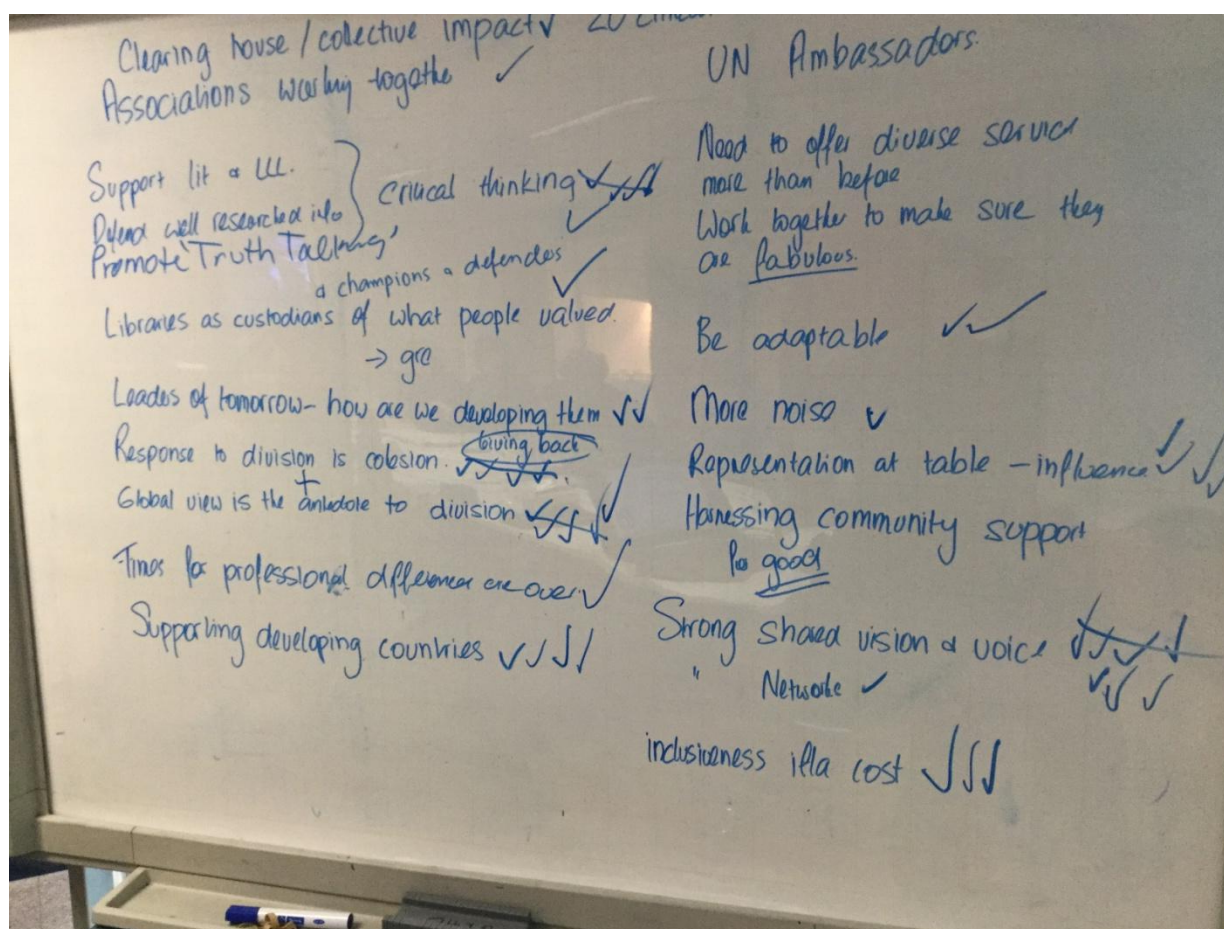 Clearing house / collective impact
Associations working togethe
Support lit & LLL.
Defend well researched info
Promote 'Truth Talking'
Critical thinking
& champions & defenders
Libraries as custodians of what people valued.
→
Leaders of tomorrow - how are we developing them
Giving back
Response to division is cohesion.
+
Global view is the antedote to division
Times for professional difference are over
Supporting developing countries
UN Ambassadors.
Need to offer diverse service
more than before
Work together to make sure they
are fabulous.
Be adaptable
More noise
Representation at table - influence
Harnessing community support
for good
Strong shared vision & voice
" Networks
inclusiveness ifla cost